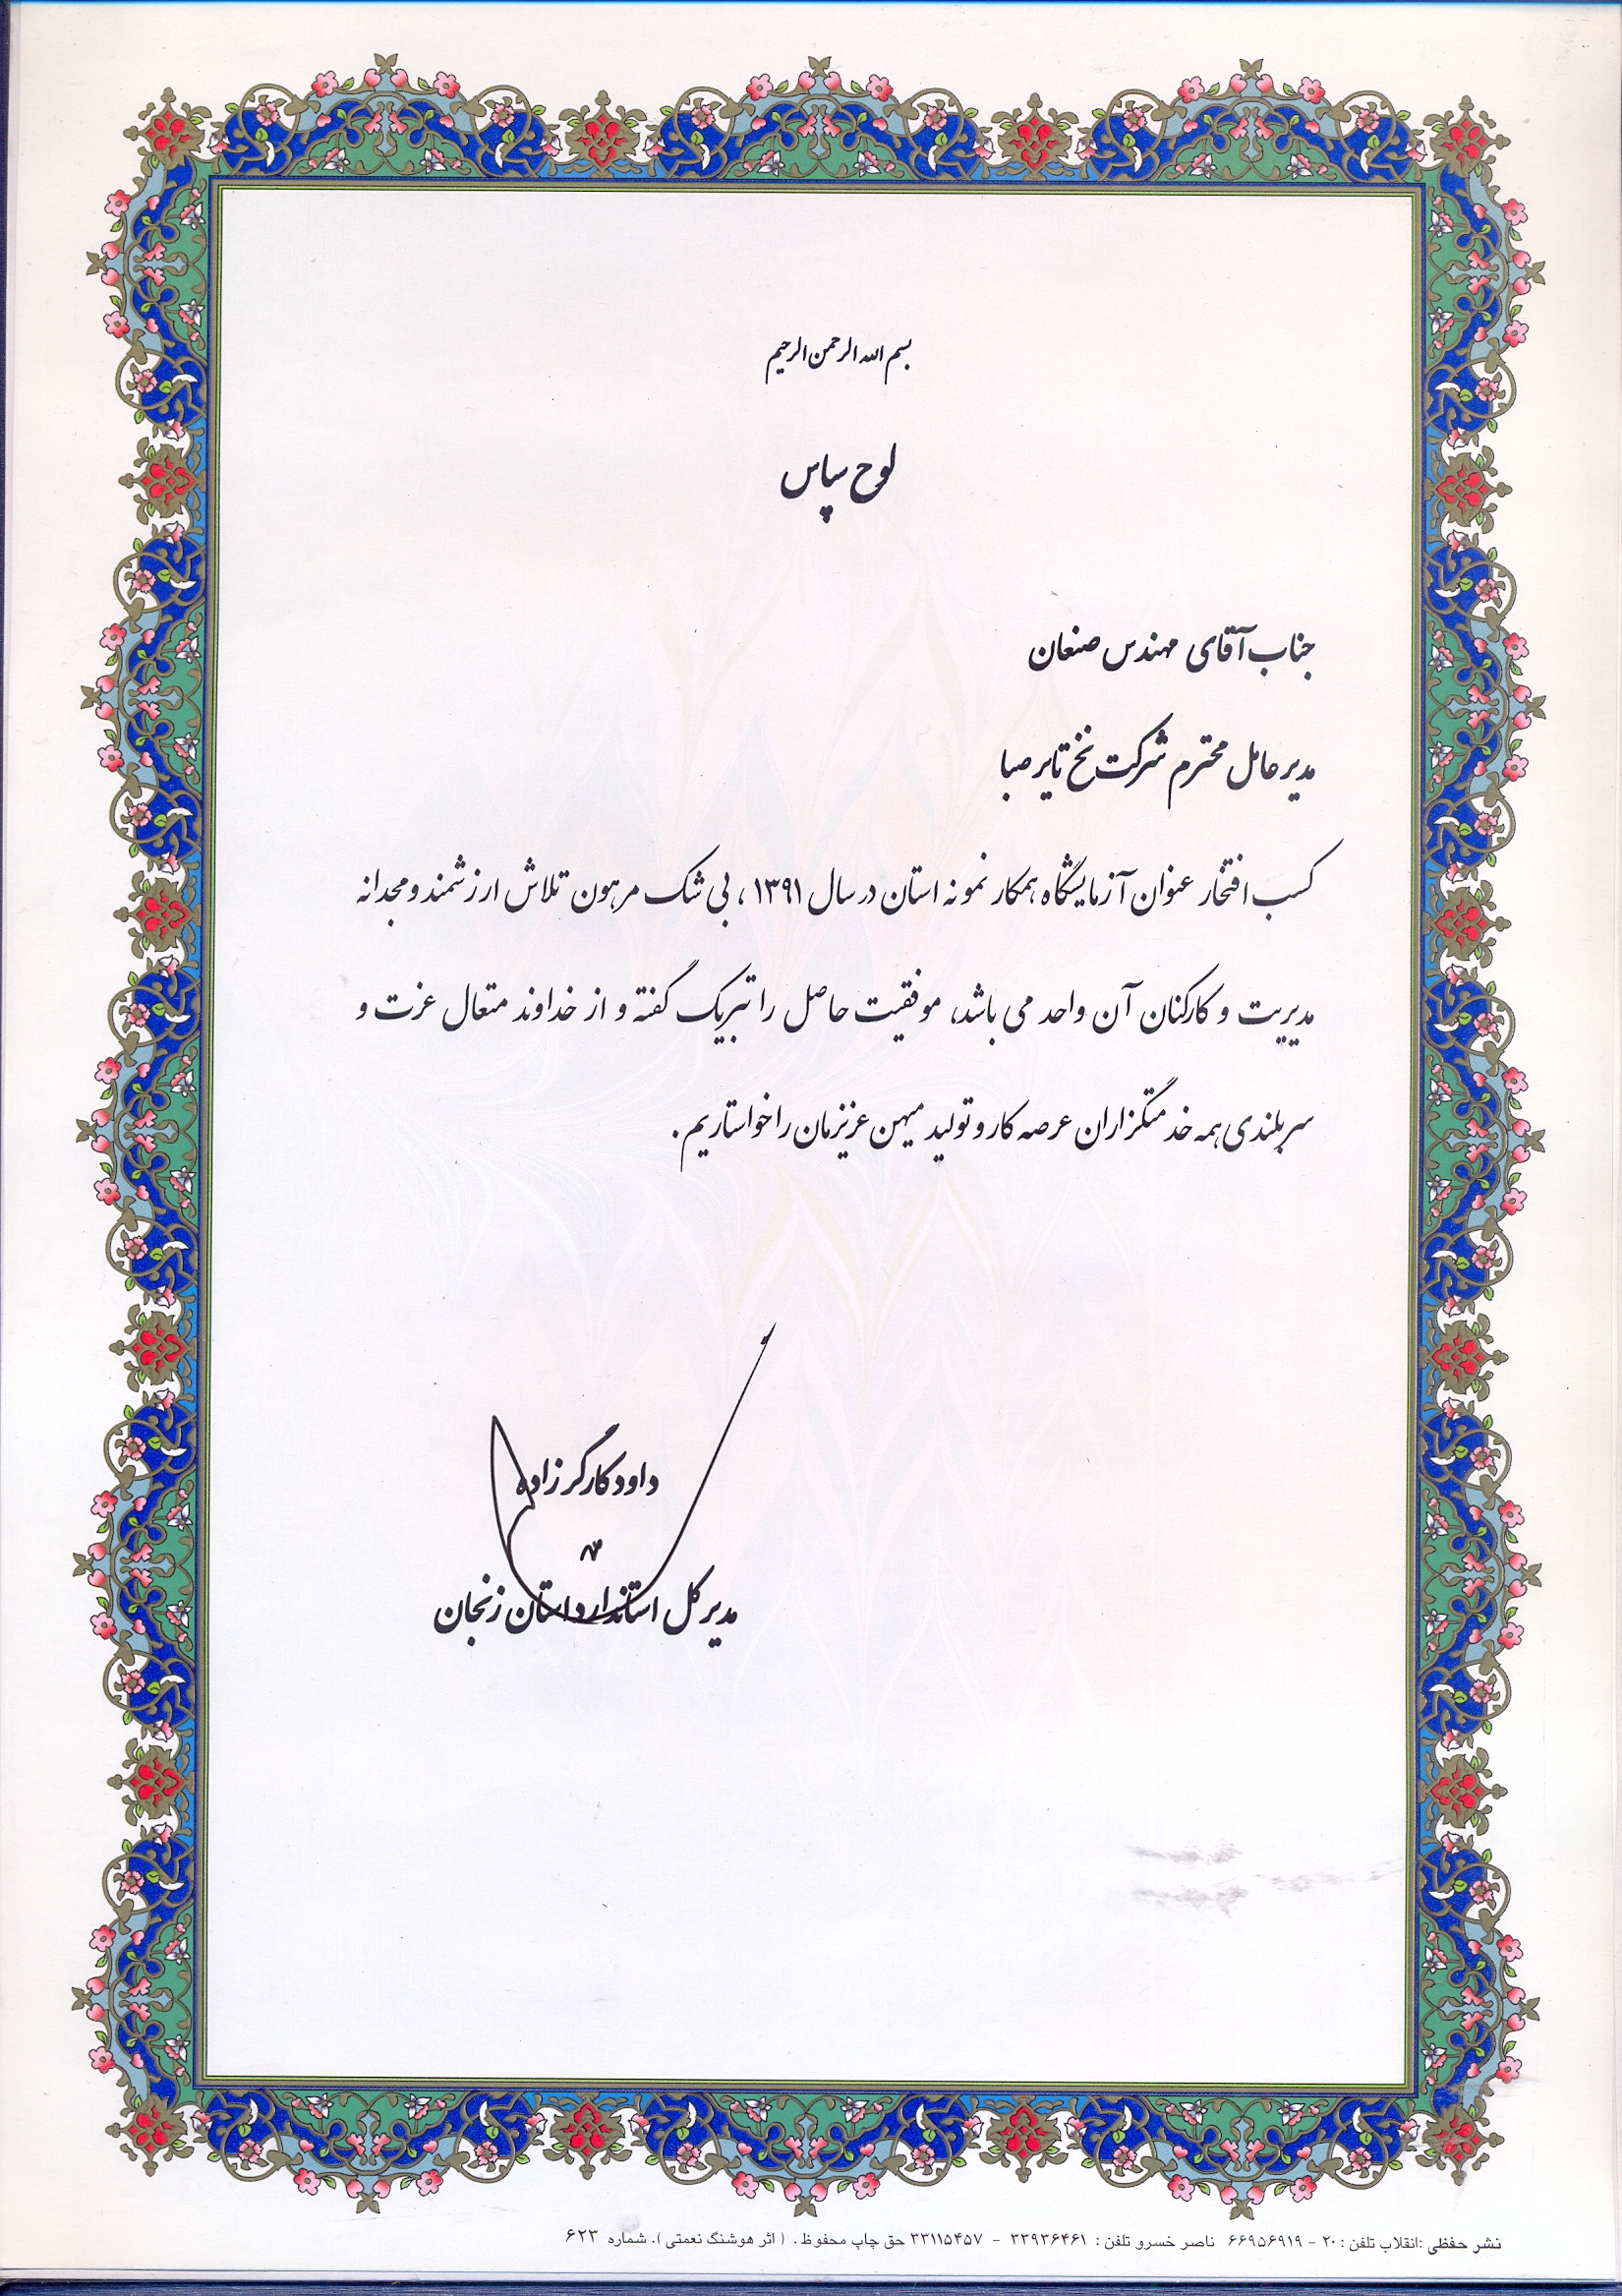 بسم الله الرحمن الرحیم
لوح سپاس
جناب آقای مهندس صنعان
مدیر عامل محترم شرکت نخ تایر صبا
کسب افتخار عنوان آزمایشگاه همکار نمونه استان در سال ۱۳۹۱ ، بی شک مرهون تلاش ارزشمند و مجدانه
مدیریت و کارکنان آن واحد می باشد، موفقیت حاصل را تبریک گفته و از خداوند متعال عزت و
سربلندی همه خدمتگزاران عرصه کار و تولید میهن عزیزمان را خواستاریم.
داود کارگرزاده
مدیر کل استاندارد استان زنجان
نشر حفظی :انقلاب تلفن : ۲۰ - ۶۶۹۵۶۹۱۹ ناصر خسرو تلفن : ۳۳۹۳۶۴۶۱ - ۳۳۱۱۵۴۵۷ حق چاپ محفوظ . ( اثر هوشنگ نعمتی ). شماره ۶۲۳